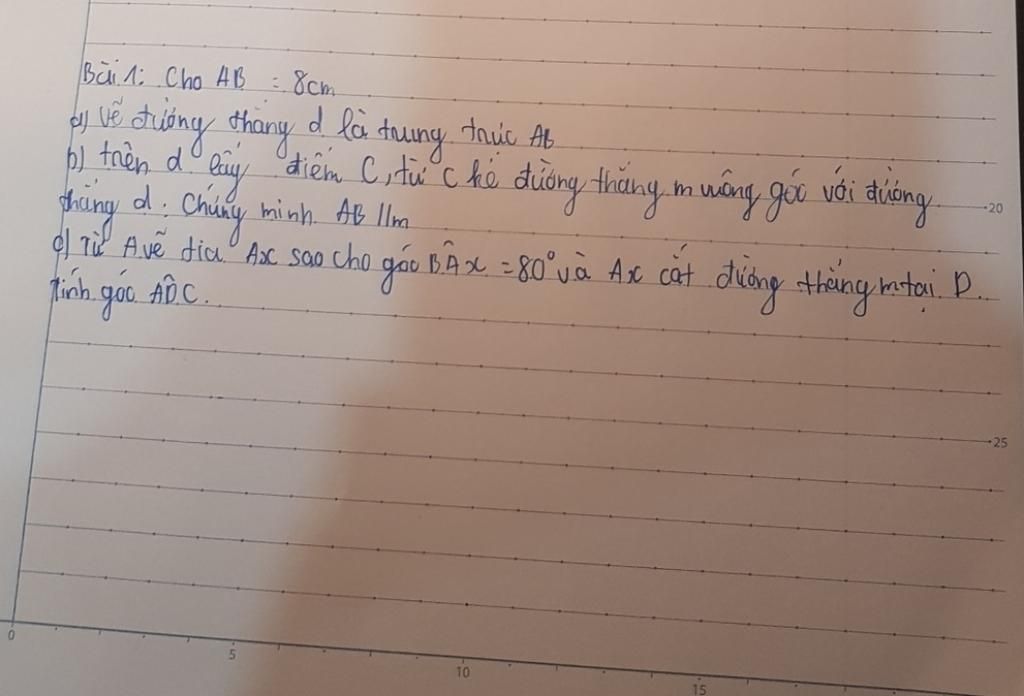 Bài 1: Cho AB = 8cm
a) Vẽ đường thẳng d là trung trực AB
b) trên d lấy điểm C, từ C kẻ đường thẳng m vuông góc với đường
thẳng d. Chứng minh AB // m
c) Từ A vẽ tia Ax sao cho góc BÂx = 80° và Ax cắt đường thẳng m tại D.
Tính góc AD̂C.
20
25
0
5
10
15